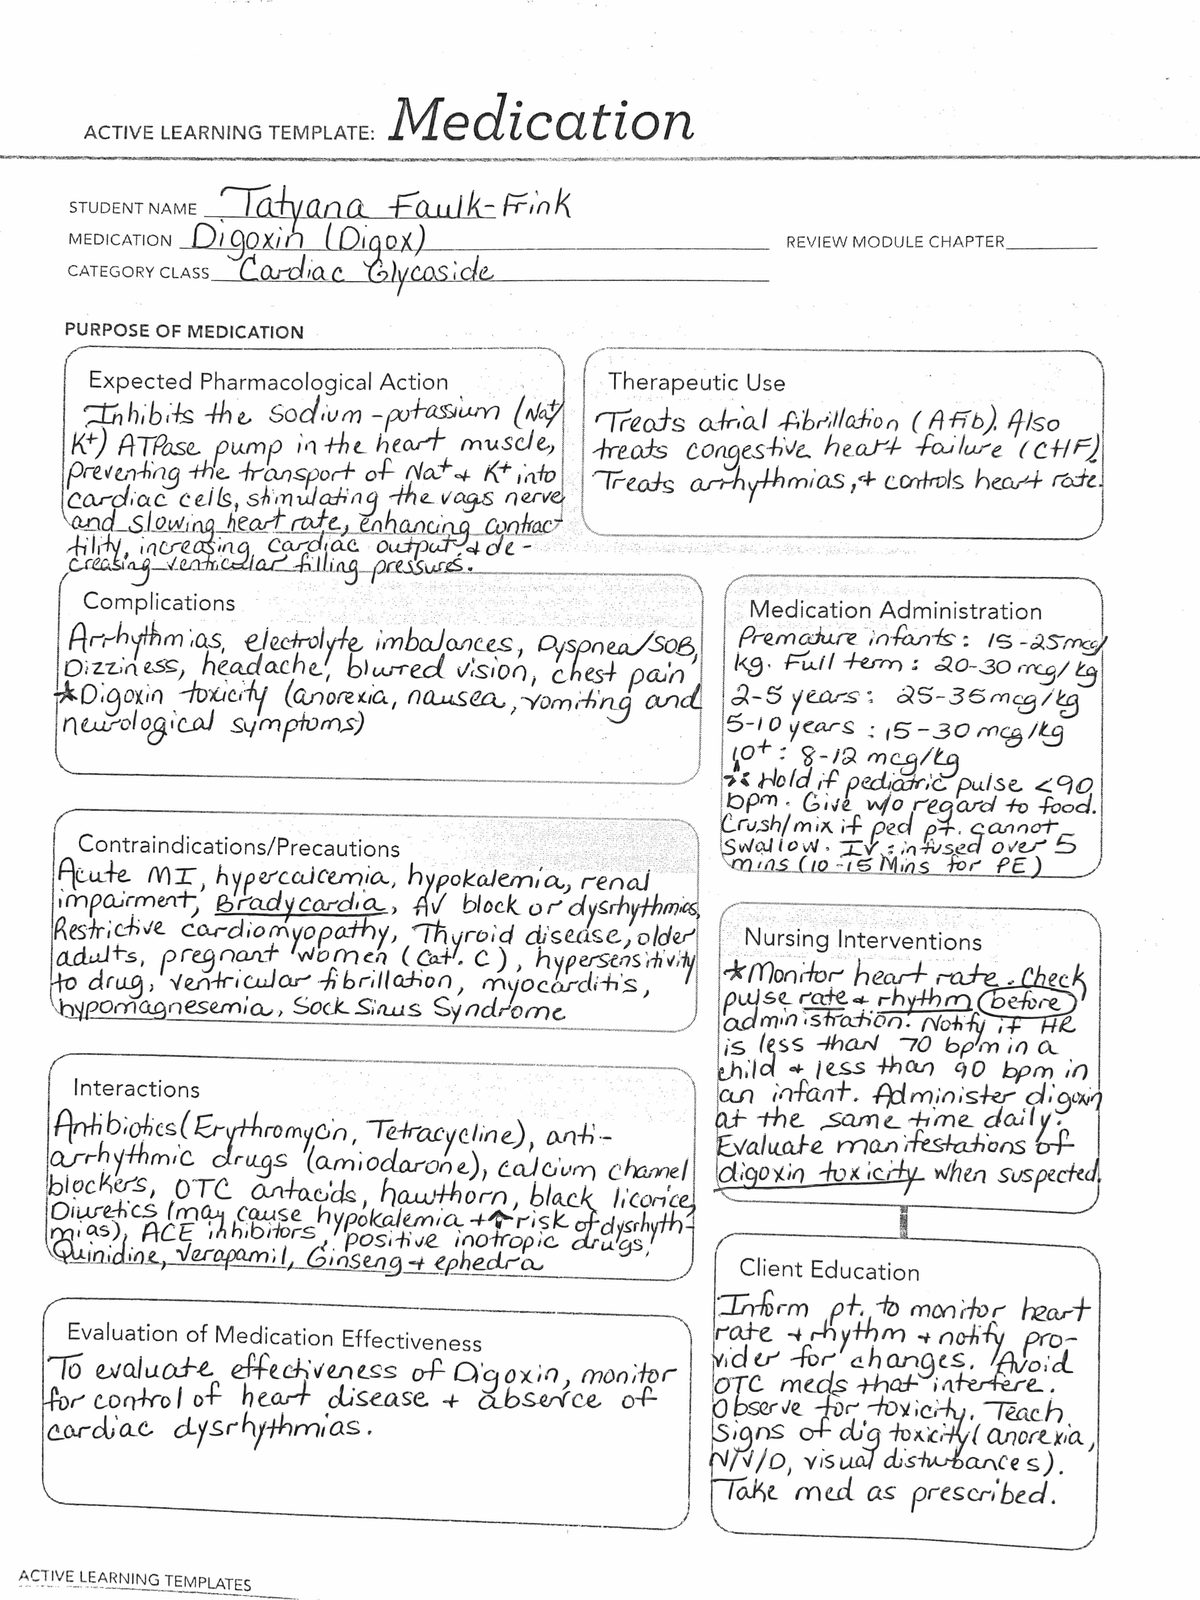 ACTIVE LEARNING TEMPLATE: Medication
STUDENT NAME Tatyana Faulk-Frink
MEDICATION Digoxin (Digox)
REVIEW MODULE CHAPTER
CATEGORY CLASS Cardiac Glycoside
PURPOSE OF MEDICATION
Expected Pharmacological Action
Inhibits the sodium-potassium (Na+/
K+) ATPase pump in the heart muscle,
preventing the transport of Na+ + K+ into
cardiac cells, stimulating the vags nerve
and slowing heart rate, enhancing contrac-
tility, increasing cardiac output + de-
creasing ventricular filling pressures.
Therapeutic Use
Treats atrial fibrillation (AFib). Also
treats congestive heart failure (CHF).
Treats arrhythmias, + controls heart rate.
Complications
Arrhythmias, electrolyte imbalances, Dyspnea/SOB,
Dizziness, headache, blurred vision, chest pain
*Digoxin toxicity (anorexia, nausea, vomiting and
neurological symptoms)
Medication Administration
Premature infants: 15-25mcg/
kg. Full term: 20-30 mcg/kg
2-5 years: 25-35mcg/kg
5-10 years: 15-30 mcg/kg
10+: 8-12 mcg/kg
* Hold if pediatric pulse <90
bpm. Give w/o regard to food.
Crush/mix if ped pt. cannot
swallow. IV: infused over 5
mins (10-15 Mins for PE)
Contraindications/Precautions
Acute MI, hypercalcemia, hypokalemia, renal
impairment, Bradycardia, AV block or dysrhythmias,
Restrictive cardiomyopathy, Thyroid disease, older
adults, pregnant women (Cat. C), hypersensitivity
to drug, ventricular fibrillation, myocarditis,
hypomagnesemia, Sock Sinus Syndrome
Nursing Interventions
*Monitor heart rate. Check
pulse rate + rhythm before
administration. Notify if HR
is less than 70 bpm in a
child + less than 90 bpm in
an infant. Administer digoxin
at the same time daily.
Evaluate manifestations of
digoxin toxicity when suspected.
Interactions
Antibiotics (Erythromycin, Tetracycline), anti-
arrhythmic drugs (amiodarone), calcium channel
blockers, OTC antacids, hawthorn, black licorice,
Diuretics (may cause hypokalemia + ↑ risk of dysrhyth-
mias), ACE inhibitors, positive inotropic drugs,
Quinidine, Verapamil, Ginseng + ephedra
Client Education
Inform pt. to monitor heart
rate + rhythm + notify pro-
vider for changes. Avoid
OTC meds that interfere.
Observe for toxicity. Teach
signs of dig toxicity (anorexia,
N/V/D, visual disturbances).
Take med as prescribed.
Evaluation of Medication Effectiveness
To evaluate effectiveness of Digoxin, monitor
for control of heart disease + absence of
cardiac dysrhythmias.
ACTIVE LEARNING TEMPLATES